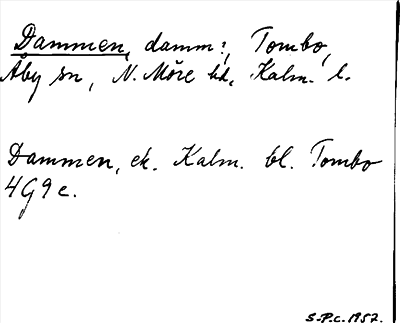 Dammen, damm:, Tombo,
Åby sn, N. Möre hd, Kalm. l.
Dammen, ek. Kalm. bl. Tombo
4G9e.
S.P.C. 1957.